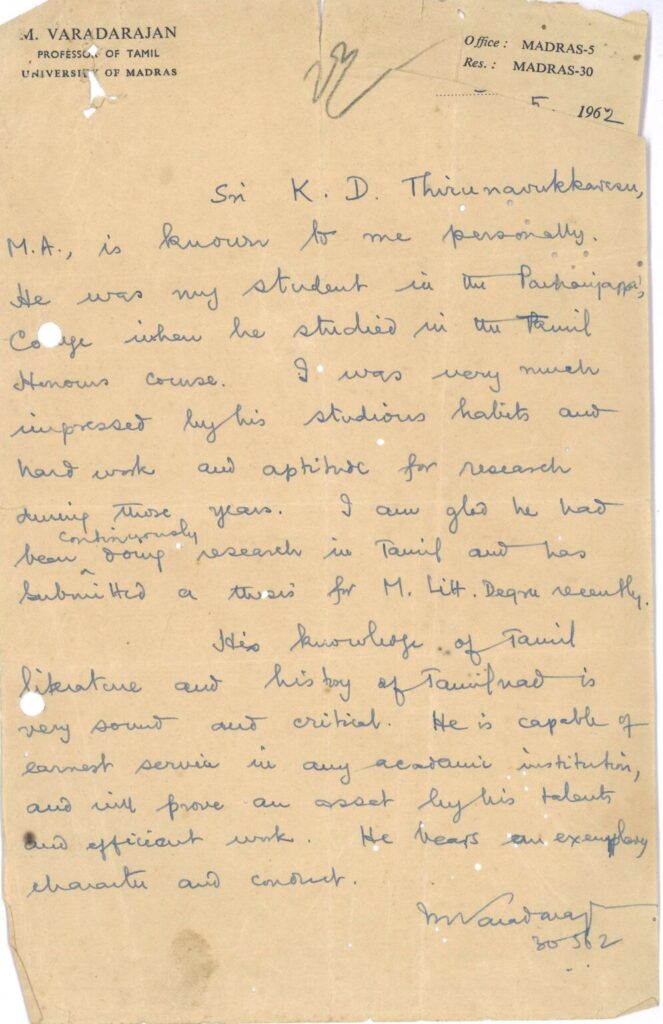 M. VARADARAJAN
PROFESSOR OF TAMIL
UNIVERSITY OF MADRAS
Office : MADRAS-5
Res. : MADRAS-30
5 1962
Sri K. D. Thirunavukkaresu,
M.A., is known to me personally.
He was my student in the Pachaiyappa's
College when he studied in the Tamil
Honours course. I was very much
impressed by his studious habits and
hard work and aptitude for research
during those years. I am glad he had
been continuously doing research in Tamil and has
submitted a thesis for M. Litt. Degree recently.
His knowledge of Tamil
literature and history of Tamilnad is
very sound and critical. He is capable of
earnest service in any academic institution,
and will prove an asset by his talents
and efficient work. He bears an exemplary
character and conduct.
M Varadaraj
30 5 62